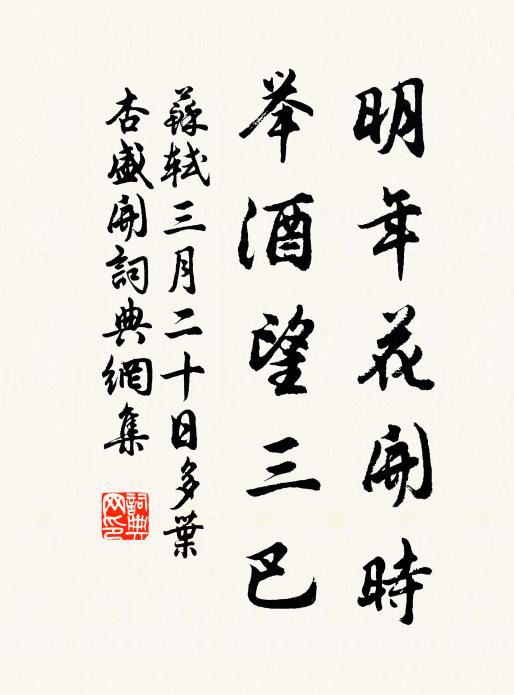 明年花開時
举酒望三巴
蘇軾三月二十日多葉
杏盛開詞典網集
詞典
网印